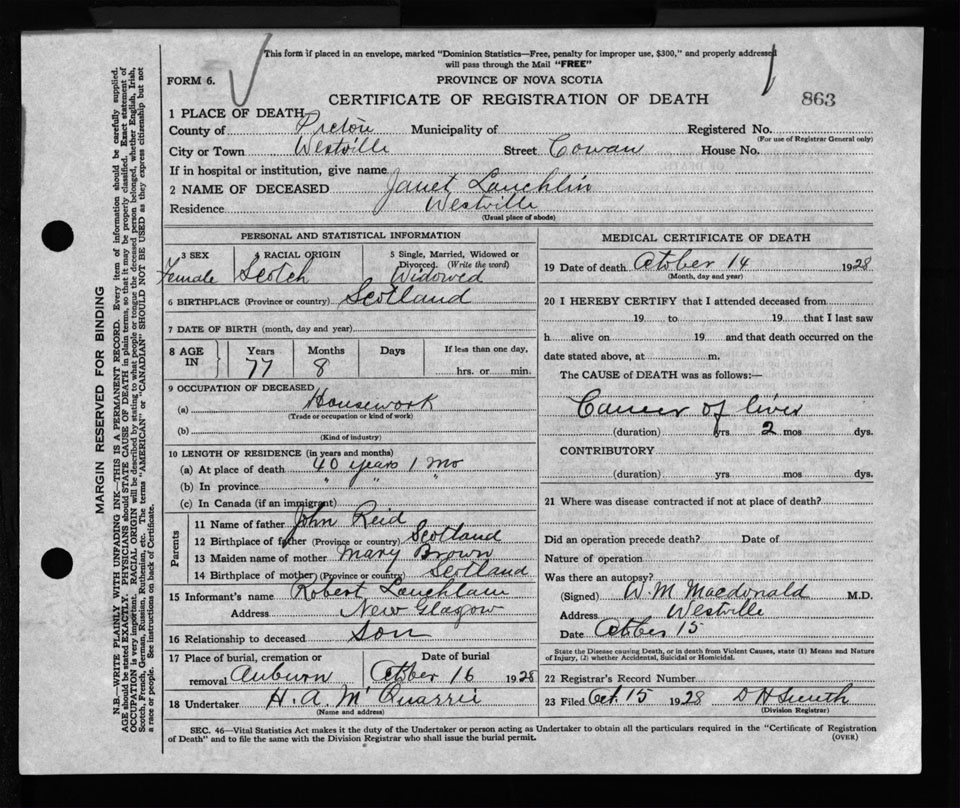 This form if placed in an envelope, marked "Dominion Statistics—Free, penalty for improper use, $300," and properly addressed
will pass through the Mail "FREE"
FORM 6.
PROVINCE OF NOVA SCOTIA
CERTIFICATE OF REGISTRATION OF DEATH
863
1 PLACE OF DEATH
County of Pictou Municipality of Registered No.
(For use of Registrar General only)
City or Town Westville Street Cowan House No.
If in hospital or institution, give name
2 NAME OF DECEASED Janet Lauchlin
Residence Westville
(Usual place of abode)
PERSONAL AND STATISTICAL INFORMATION
3 SEX 4 RACIAL ORIGIN 5 Single, Married, Widowed or
Divorced. (Write the word)
Female Scotch Widowed
6 BIRTHPLACE (Province or country) Scotland
7 DATE OF BIRTH (month, day and year)
8 AGE IN Years Months Days If less than one day,
77 8 hrs. or min.
9 OCCUPATION OF DECEASED
(a) Housework
(Trade or occupation or kind of work)
(b)
(Kind of industry)
10 LENGTH OF RESIDENCE (in years and months)
(a) At place of death 40 years 1 mo
(b) In province " " "
(c) In Canada (if an immigrant)
Parents
11 Name of father John Reid
12 Birthplace of father (Province or country) Scotland
13 Maiden name of mother Mary Brown
14 Birthplace of mother (Province or country) Scotland
15 Informant's name Robert Lauchlan
Address New Glasgow
16 Relationship to deceased Son
17 Place of burial, cremation or Date of burial
removal Auburn October 16 1928
18 Undertaker H. A. McQuarrie
(Name and address)
MEDICAL CERTIFICATE OF DEATH
19 Date of death October 14 1928
(Month, day and year)
20 I HEREBY CERTIFY that I attended deceased from
19 to 19 that I last saw
h alive on 19 and that death occurred on the
date stated above, at m.
The CAUSE of DEATH was as follows:—
Cancer of liver
(duration) yrs 2 mos dys.
CONTRIBUTORY
(duration) yrs mos dys.
21 Where was disease contracted if not at place of death?
Did an operation precede death? Date of
Nature of operation
Was there an autopsy?
(Signed) W. M. Macdonald M.D.
Address Westville
Date October 15
State the Disease causing Death, or in death from Violent Causes, state (1) Means and Nature
of Injury, (2) whether Accidental, Suicidal or Homicidal.
22 Registrar's Record Number
23 Filed Oct. 15 1928 D H Smith
(Division Registrar)
SEC. 46—Vital Statistics Act makes it the duty of the Undertaker or person acting as Undertaker to obtain all the particulars required in the "Certificate of Registration
of Death" and to file the same with the Division Registrar who shall issue the burial permit.
(OVER)
MARGIN RESERVED FOR BINDING
N.B.—WRITE PLAINLY WITH UNFADING INK—THIS IS A PERMANENT RECORD. Every item of information should be carefully supplied.
AGE should be stated EXACTLY. PHYSICIANS should STATE CAUSE OF DEATH in plain terms, so that it may be properly classified. Exact statement of
OCCUPATION is very important. RACIAL ORIGIN will be described by stating to what people or tongue the deceased person belonged, whether English, Irish,
Scotch, French, German, Russian, Ruthenian, etc. The terms "AMERICAN" or "CANADIAN" SHOULD NOT BE USED as they express citizenship but not
a race or people. See instructions on back of Certificate.